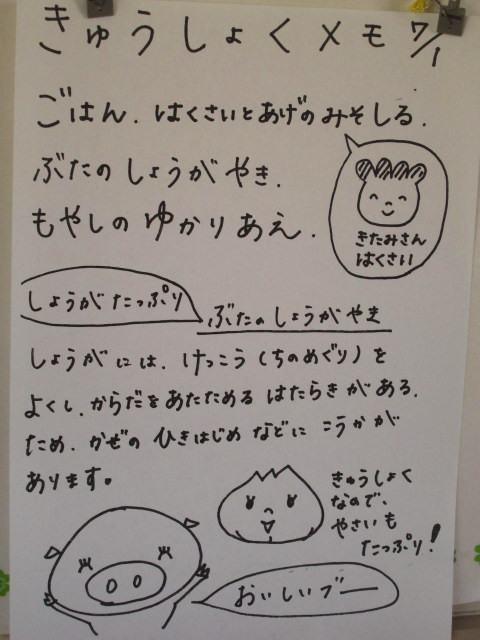 きゅうしょくメモ 7/1
ごはん.はくさいとあげのみそしる.
ぶたのしょうがやき.
もやしのゆかりあえ.
きたみさん
はくさい
しょうがたっぷり
ぶたのしょうがやき
しょうがには.けっこう(ちのめぐり)を
よくし.からだをあたためるはたらきがある.
ため.かぜのひきはじめなどにこうかが
あります。
きゅうしょく
なので、
やさいも
たっぷり!
おいしいブー